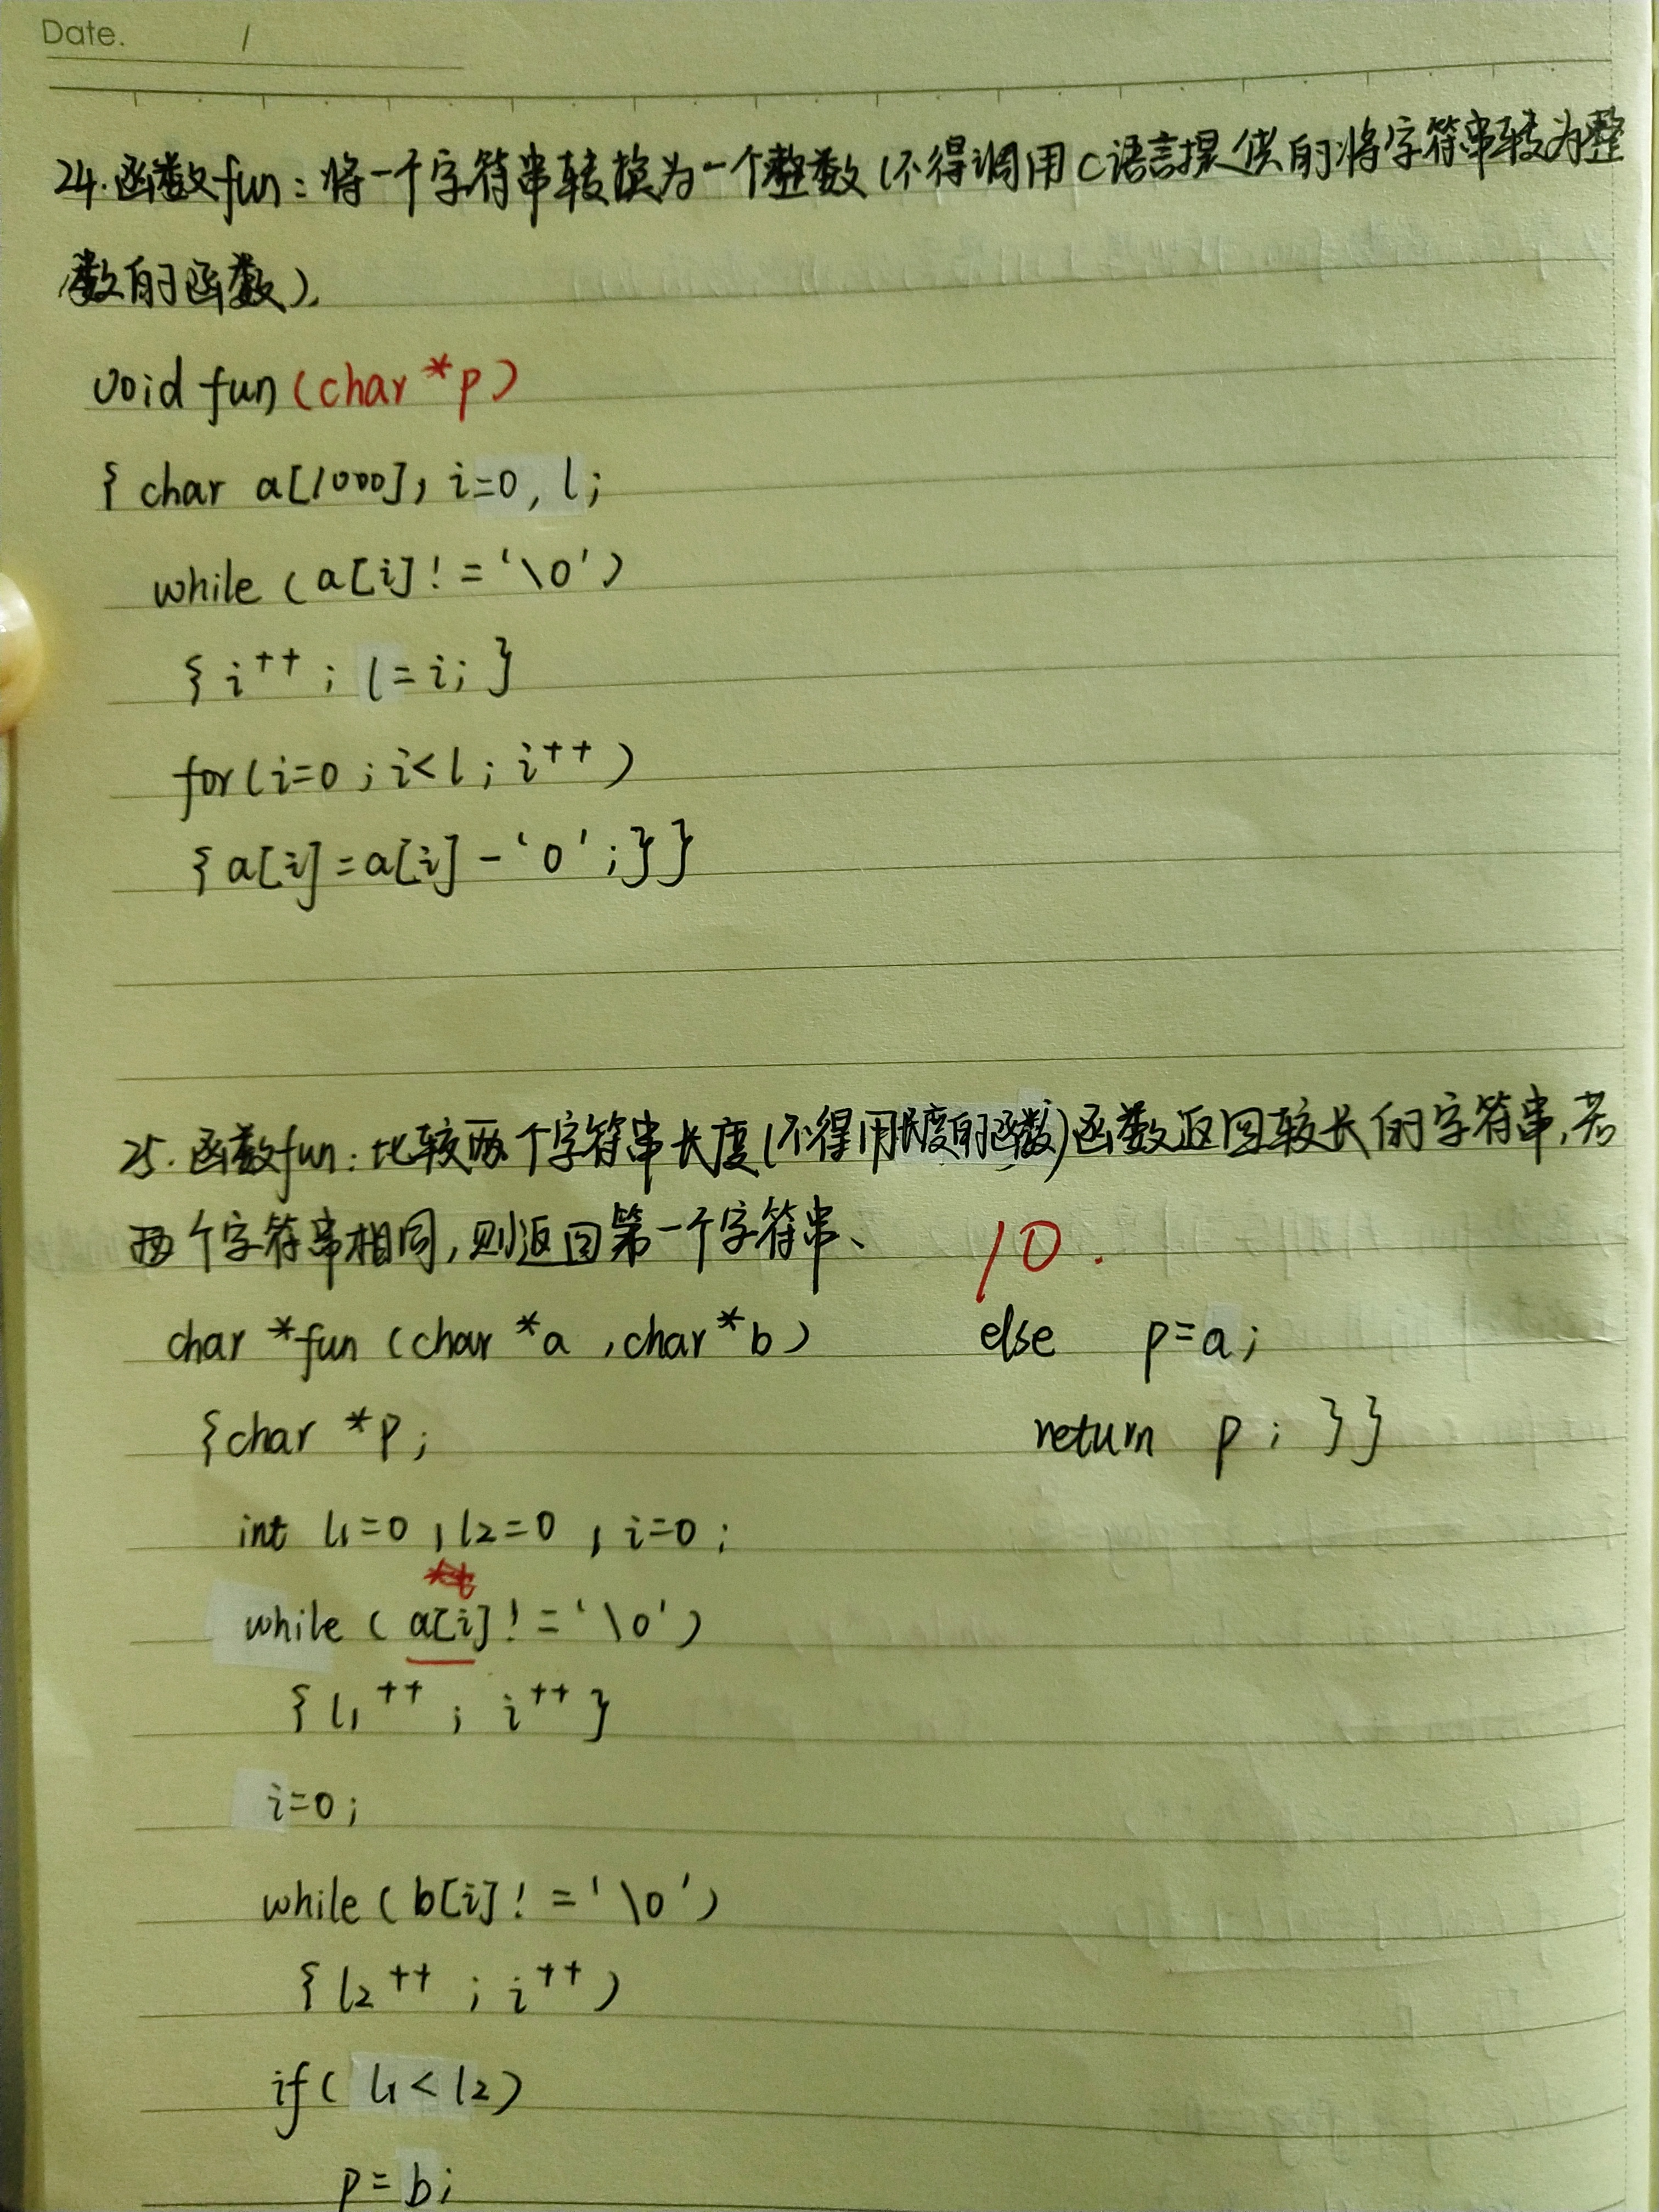 Date. /
24.函数fun:将一个字符串转换为一个整数(不得调用C语言提供的将字符串转为整
数的函数).
void fun (char *p)
{ char a[1000], i=0, l;
while (a[i]!='\0')
{ i++; l=i; }
for(i=0;i<l;i++)
{a[i]=a[i]-'0';}}
25.函数fun:比较两个字符串长度(不得用长度的函数)函数返回较长的字符串,若
两个字符串相同,则返回第一个字符串、
10.
char *fun (char *a ,char *b)
{char *p;
int l1=0, l2=0, i=0;
while ( a[i]!='\0')
{ l1++; i++}
i=0;
while ( b[i]!='\0')
{ l2++; i++)
if( l1<l2)
p=b;
else p=a;
return p; }}